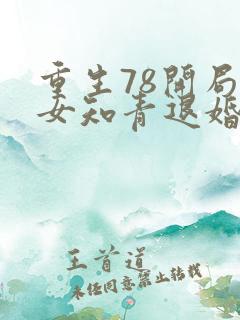 重生78开局
女知青退婚
王首道
未经同意禁止转载